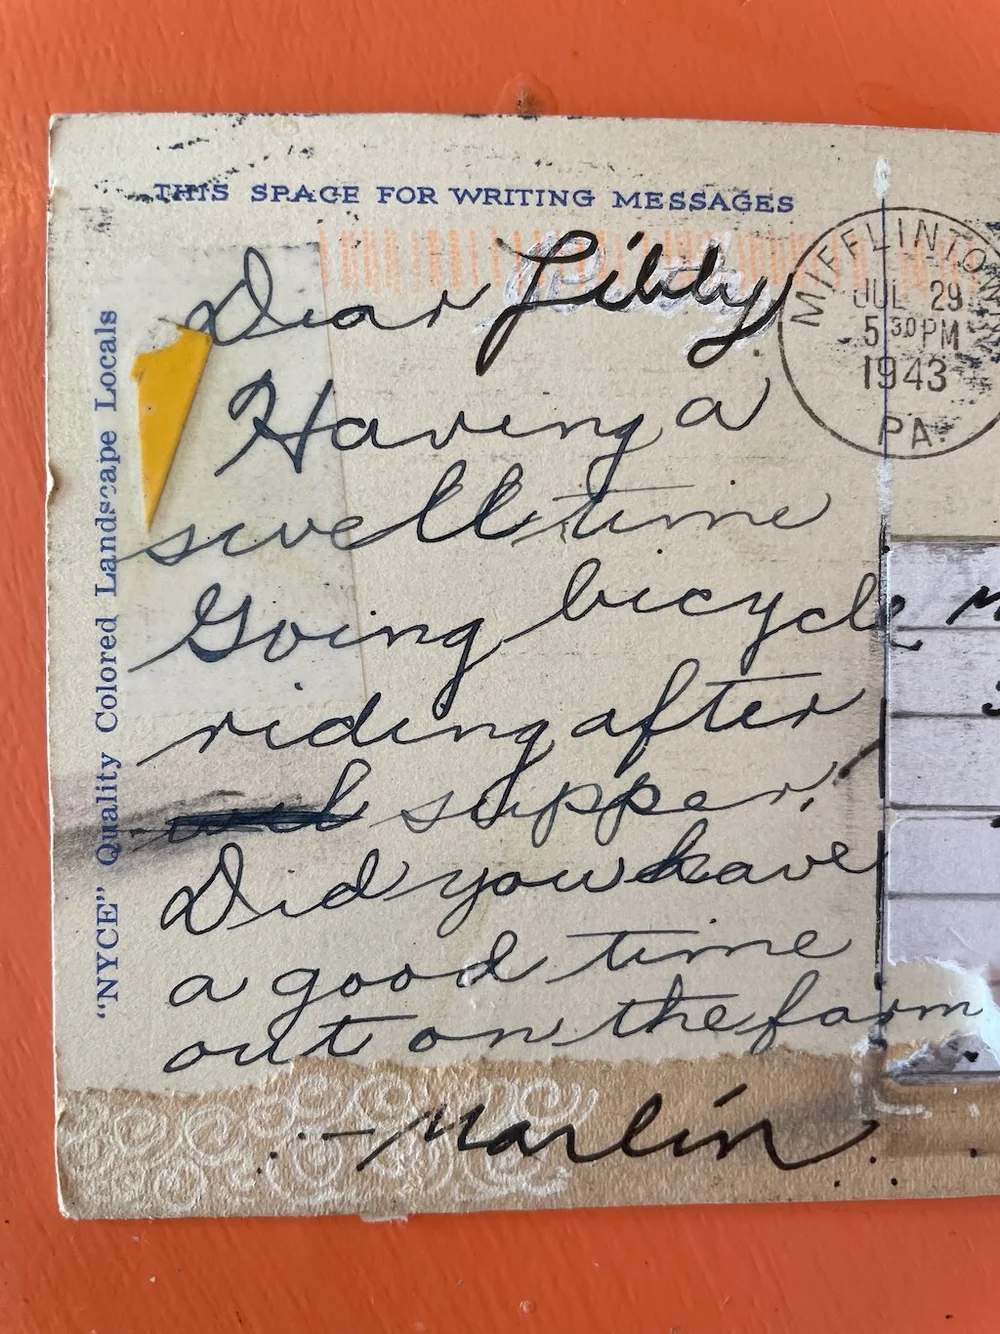 THIS SPACE FOR WRITING MESSAGES
"NYCE" Quality Colored Landscape Locals
MIFFLINTOWN
JUL 29
5 30 PM
1943
PA.
Dear Libby
Having a
swell time
Going bicycle
riding after
supper.
Did you have
a good time
out on the farm
- Marlin